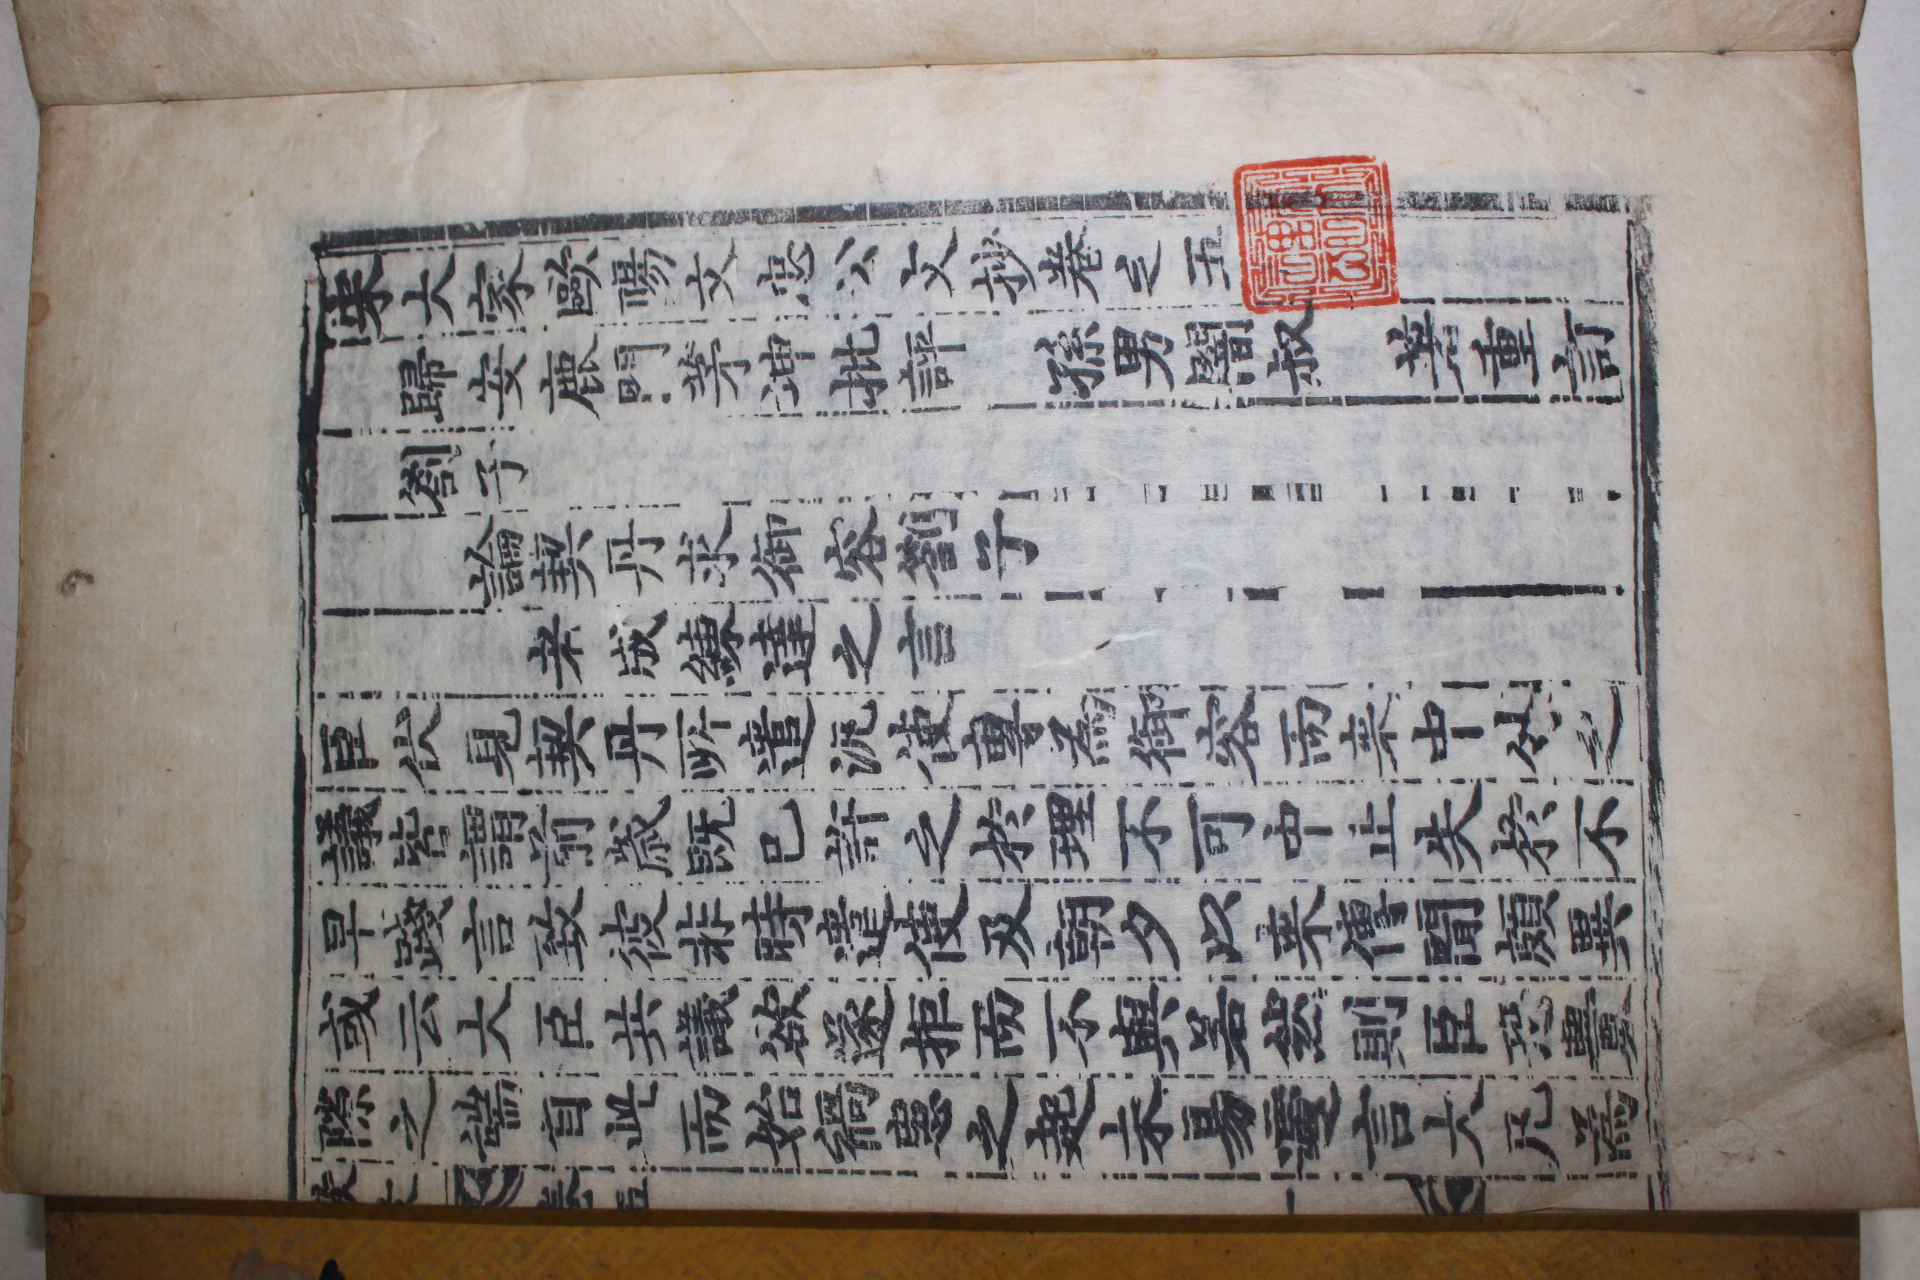 宋大家歐陽文忠公文抄卷之五
歸安鹿門茅坤批評 孫男闇叔 著重訂
劄子
論契丹求御容劄子
老成練達之言
臣伏見契丹所遣泛使專為御容而來中外之
議皆謂前歲既已許之於理不可中止失於不
早踐言致彼非時遣使及朝夕以來傳聞頗異
或云大臣共議欲遂拒而不與若然則臣恐釁
隙之端自此而始禍患之起未易遽言大凡為
歐文 卷五 一